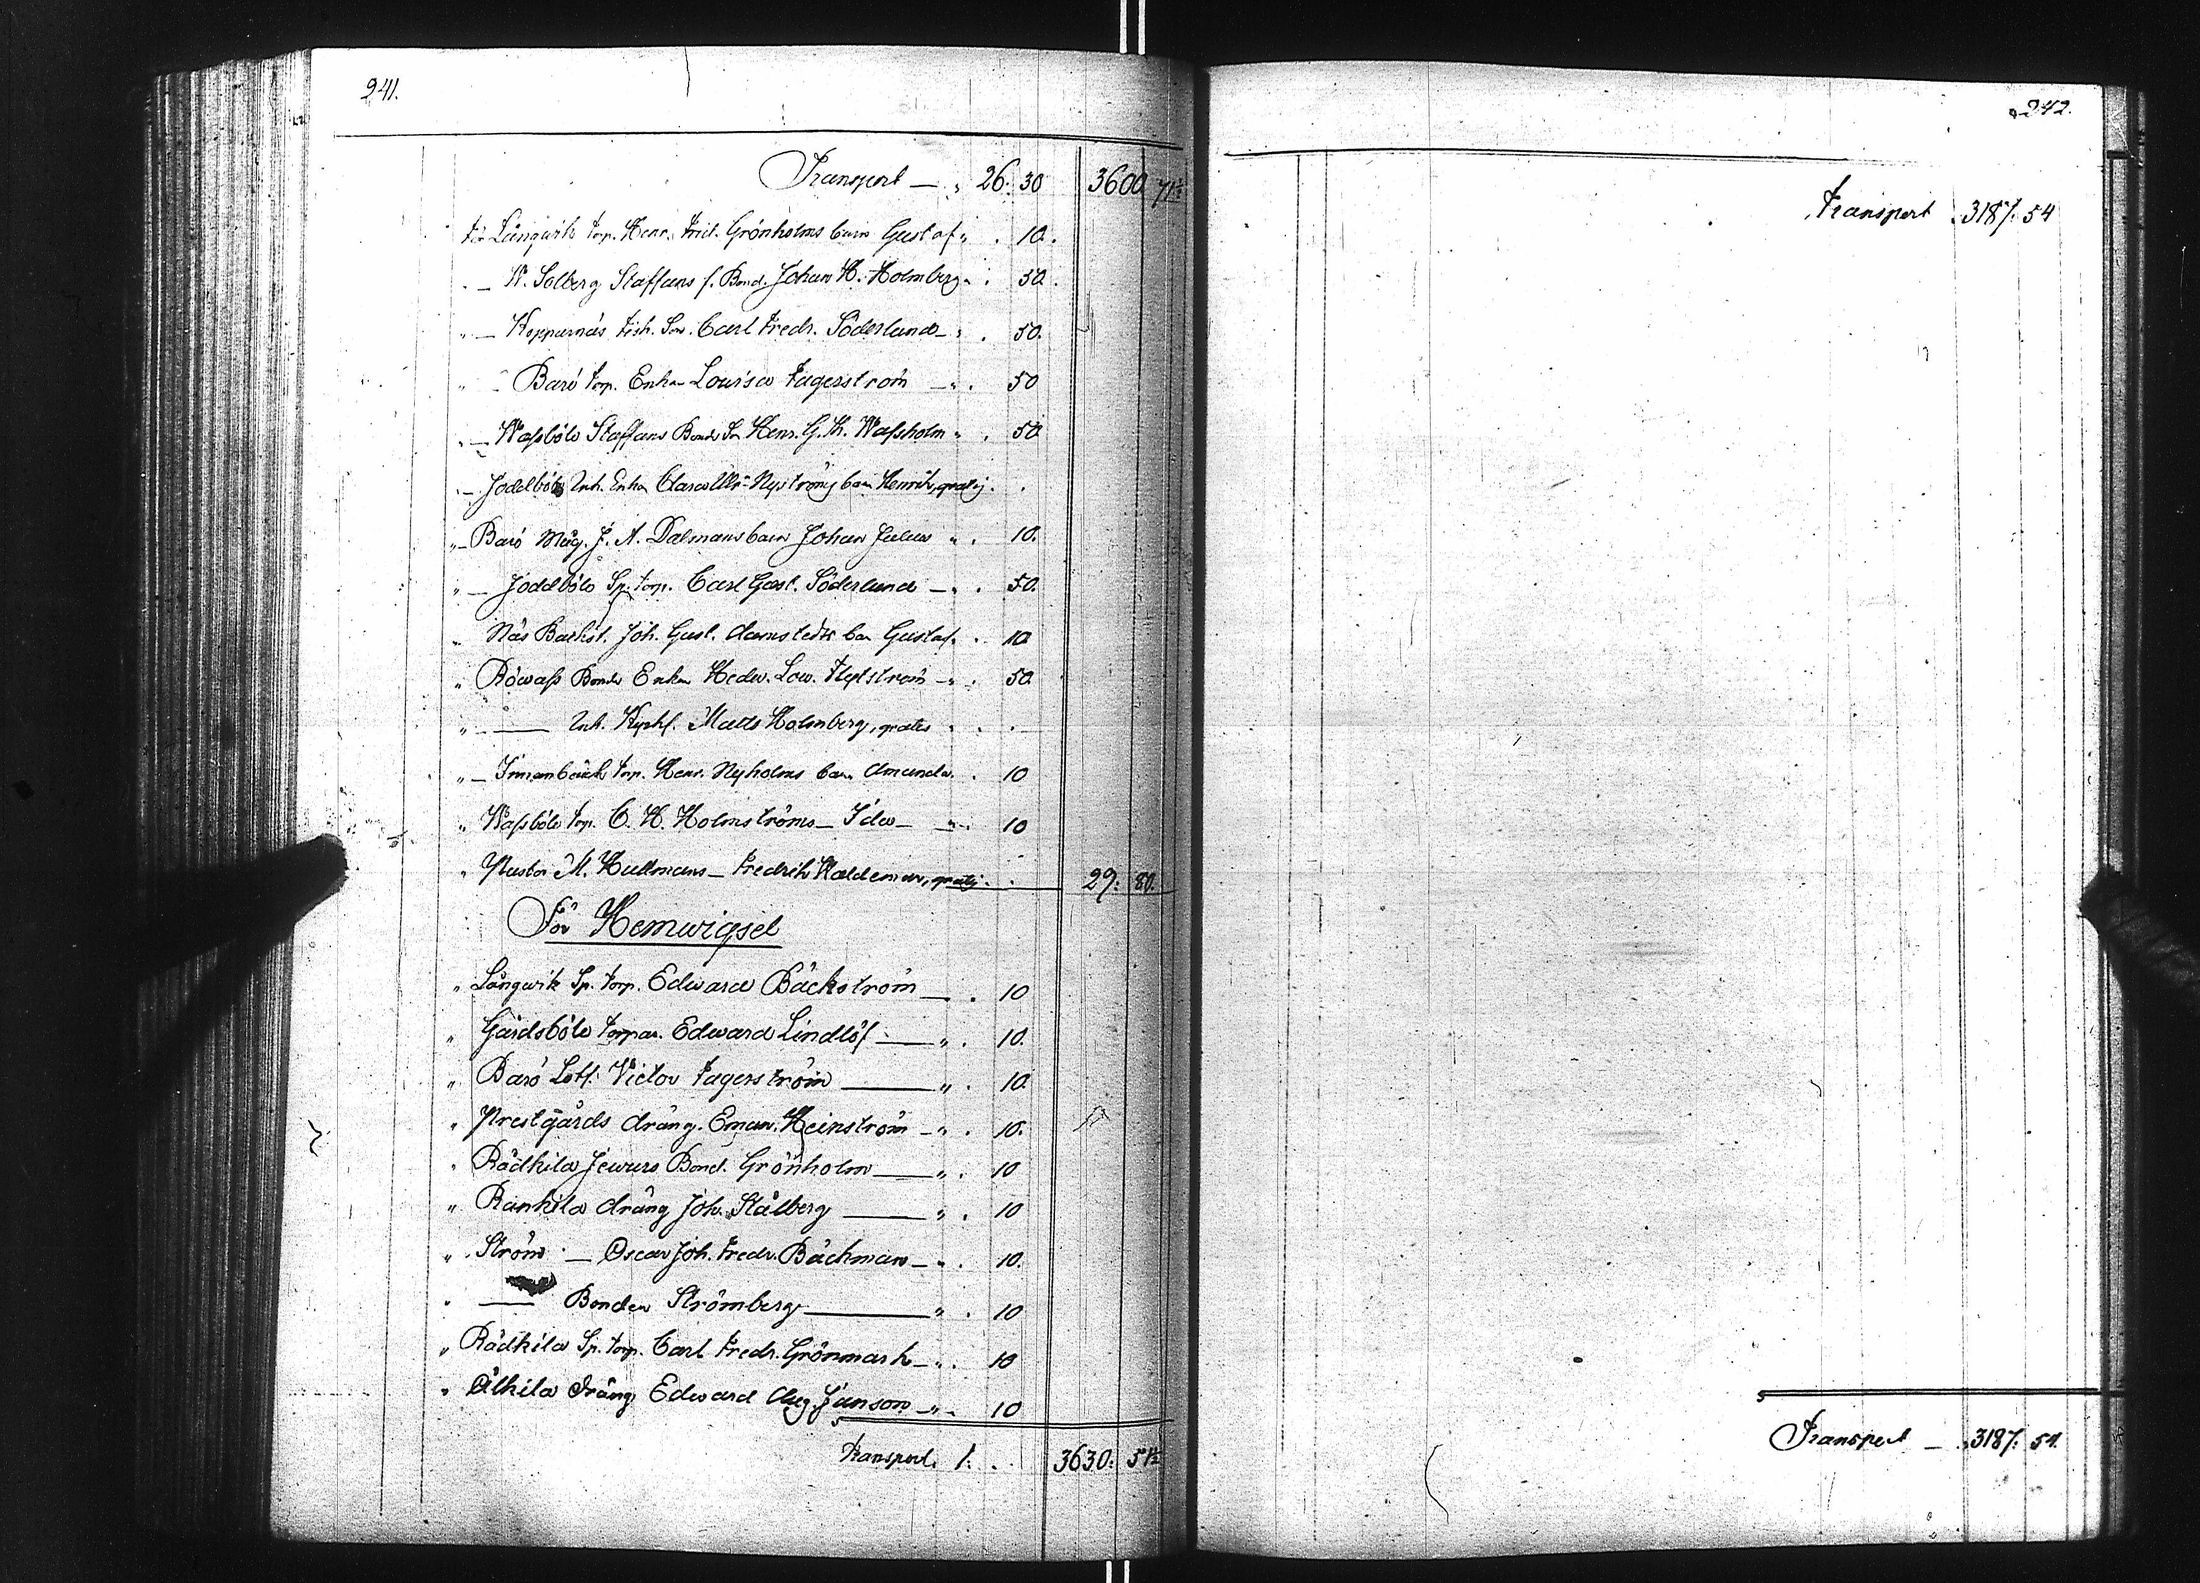 241.
Transport — „ 26: 30 3600 71½
För Långwik torp. Henr. Frid. Grönholms barn Gustaf „ . 10.
„ — W. Solberg Staffans f. Bond. Johan H. Holmberg „ . 50.
„ — Kopparnäs Fisk. Son. Carl Fredr. Söderlund — „ . 50.
„ — Barö torp. Enkan Lovisa Fagerström — „ . 50
„ — Wassböle Staffans Bonde Son Henr. G. Wassholm „ . 50
„ — Joddböle Inh. Enkan Clara Ulr. Nyströms barn Henrik, gratis . .
„ — Barö Måg. J. A. Dalmans barn Johan Julius „ . 10.
„ — Joddböle Sp. torp. Carl Gust. Söderlund — „ . 50.
„ Näs Backst. Joh. Gust. Damstedts barn Gustaf „ . 10
„ Röwass Bonde Enkan Hedv. Lov. Flytström — „ . 50.
„ —— Inh. Mats Holmberg, gratis . . .
„ — Innanbäck torp. Henr. Nyholms barn Amanda . . 10
„ Wassböle torp. C. H. Holmströms — Ida — „ . 10
„ Pastor M. Hullmans — Fredrik Waldemar, gratis . . 29: 80.
För Hemwigsel
„ Långwik Sp. torp. Edward Bäckström — . 10
„ Gårdsböle torpar. Edward Lindlöf — „ . 10.
„ Barö Lots. Victor Fagerström — „ . 10.
„ Prestgårds dräng. Eman. Heinström — „ . 10.
„ Rådkila Jewurs Bond. Grönholm — „ . 10
„ Rankila dräng Joh. Stålberg — „ . 10
„ Ströms — Oscar Joh. Fredr. Bäckman — „ . 10.
„ —— Bonden Strömberg — „ . 10
„ Rådkila Sp. torp. Carl Fredr. Grönmark — „ . 10
„ Ålkila dräng Edward Aug. Janson — „ — 10
Transport. 1: . . 3630: 51½
242.
Transport . 3187: 54
Transport — „ 3187: 54.